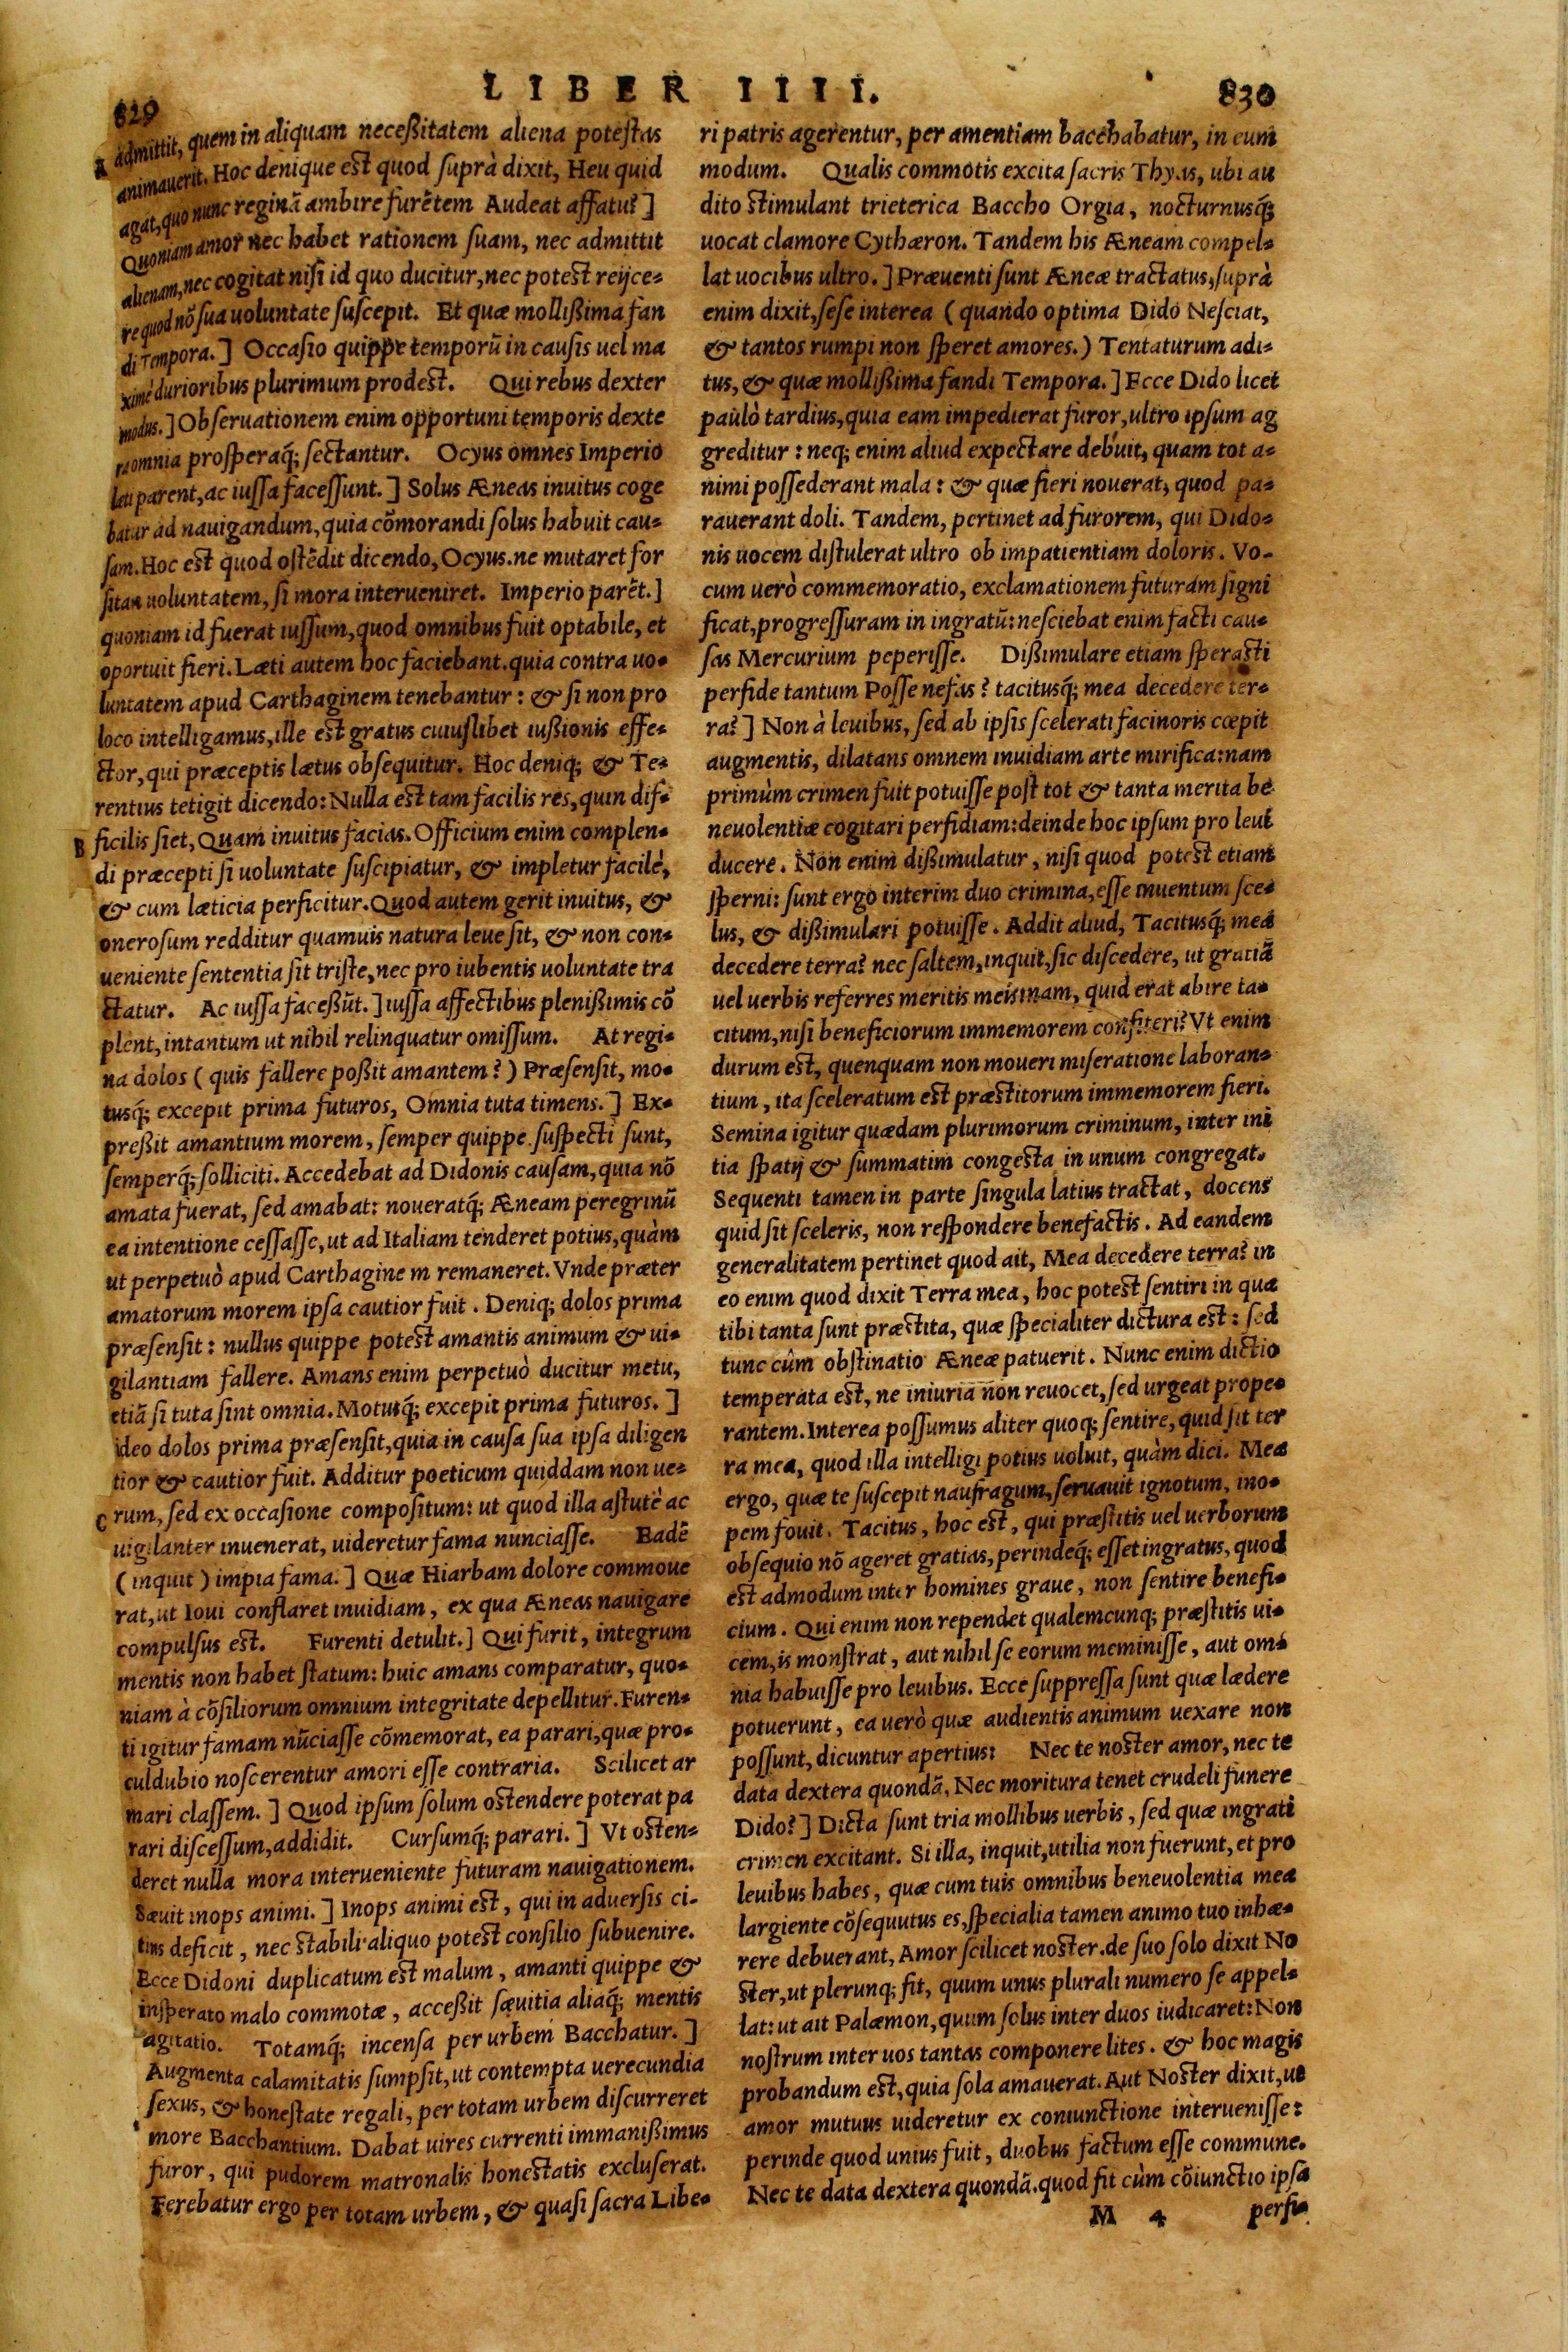 LIBER IIII.
829
830
A admittit, quem in aliquam neceßitatem aliena potestas
animauerit. Hoc denique est quod suprà dixit, Heu quid
agat, quo nunc reginā ambire furētem Audeat affatu? ]
Quoniam amor nec habet rationem suam, nec admittit
alienam, nec cogitat nisi id quo ducitur, nec potest reijce-
re quod nō sua uoluntate suscepit. Et quæ mollißima fan
di Tempora. ] Occasio quippe temporū in causis uel ma
ximè durioribus plurimum prodest. Qui rebus dexter
modus. ] Obseruationem enim opportuni temporis dexte
ra omnia prosperaq́; sectantur. Ocyus omnes Imperio
læti parent, ac iussa facessunt. ] Solus Æneas inuitus coge
batur ad nauigandum, quia cōmorandi solus habuit cau-
sam. Hoc est quod ostēdit dicendo, Ocyus. ne mutaret for
sitan uoluntatem, si mora interueniret. Imperio parēt. ]
quoniam id fuerat iussum, quod omnibus fuit optabile, et
oportuit fieri. Læti autem hoc faciebant. quia contra uo-
luntatem apud Carthaginem tenebantur: & si non pro
loco intelligamus, ille est gratus cuiuslibet iußionis effe-
ctor, qui præceptis lætus obsequitur. Hoc deniq; & Te-
rentius tetigit dicendo: Nulla est tam facilis res, quin dif-
B ficilis siet, Quam inuitus facias. Officium enim complen-
di præcepti si uoluntate suscipiatur, & impletur facilè,
& cum læticia perficitur. Quod autem gerit inuitus, &
onerosum redditur quamuis natura leue sit, & non con-
ueniente sententia sit triste, nec pro iubentis uoluntate tra
ctatur. Ac iussa faceßūt. ] iussa affectibus plenißimis cō
plent, intantum ut nihil relinquatur omissum. At regi-
na dolos ( quis fallere poßit amantem? ) Præsensit, mo-
tusq́; excepit prima futuros, Omnia tuta timens. ] Ex-
preßit amantium morem, semper quippe suspecti sunt,
semperq́; solliciti. Accedebat ad Didonis causam, quia nō
amata fuerat, sed amabat: noueratq́; Æneam peregrinū
ea intentione cessasse, ut ad Italiam tenderet potius, quàm
ut perpetuò apud Carthagine m remaneret. Vnde præter
amatorum morem ipsa cautior fuit. Deniq; dolos prima
præsensit: nullus quippe potest amantis animum & ui-
gilantiam fallere. Amans enim perpetuò ducitur metu,
etiā si tuta sint omnia. Motusq́; excepit prima futuros. ]
ideo dolos prima præsensit, quia in causa sua ipsa diligen
tior & cautior fuit. Additur poeticum quiddam non ue-
C rum, sed ex occasione compositum: ut quod illa astutè ac
uigilanter inuenerat, uideretur fama nunciasse. Eadē
( inquit ) impia fama. ] Quæ Hiarbam dolore commoue
rat, ut Ioui conflaret inuidiam, ex qua Æneas nauigare
compulsus est. Furenti detulit. ] Qui furit, integrum
mentis non habet statum: huic amans comparatur, quo-
niam à cōsiliorum omnium integritate depellitur. Furen-
ti igitur famam nūciasse cōmemorat, ea parari, quæ pro-
culdubio noscerentur amori esse contraria. Scilicet ar
mari classem. ] Quod ipsum solum ostendere poterat pa
rari discessum, addidit. Cursumq́; parari. ] Vt osten-
deret nulla mora interueniente futuram nauigationem.
Sæuit inops animi. ] Inops animi est, qui in aduersis ci-
tius deficit, nec stabili aliquo potest consilio subuenire.
Ecce Didoni duplicatum est malum, amanti quippe &
insperato malo commotæ, acceßit sæuitia aliaq́; mentis
agitatio. Totamq́; incensa per urbem Bacchatur. ]
Augmenta calamitatis sumpsit, ut contempta uerecundia
sexus, & honestate regali, per totam urbem discurreret
more Bacchantium. Dabat uires currenti immanißimus
furor, qui pudorem matronalis honestatis excluserat.
Ferebatur ergo per totam urbem, & quasi sacra Libe-
ri patris agerentur, per amentiam bacchabatur, in eum
modum. Qualis commotis excita sacris Thyas, ubi au
dito stimulant trieterica Baccho Orgia, nocturnusq́;
uocat clamore Cythæron. Tandem his Æneam compel-
lat uocibus ultro. ] Præuenti sunt Æneæ tractatus, suprà
enim dixit, sese interea ( quando optima Dido Nesciat,
& tantos rumpi non speret amores. ) Tentaturum adi-
tus, & quæ mollißima fandi Tempora. ] Ecce Dido licet
paulò tardius, quia eam impedierat furor, ultro ipsum ag
greditur: neq; enim aliud expectare debuit, quam tot a-
nimi possederant mala: & quæ fieri nouerat, quod pa-
rauerant doli. Tandem, pertinet ad furorem, qui Dido-
nis uocem distulerat ultro ob impatientiam doloris. Vo-
cum uerò commemoratio, exclamationem futuram signi
ficat, progressuram in ingratū: nesciebat enim facti cau-
sas Mercurium peperisse. Dißimulare etiam sperasti
perfide tantum Posse nefas? tacitusq́; mea decedere ter-
ra? ] Non à leuibus, sed ab ipsis scelerati facinoris cœpit
augmentis, dilatans omnem inuidiam arte mirifica: nam
primùm crimen fuit potuisse post tot & tanta merita be
neuolentiæ cogitari perfidiam: deinde hoc ipsum pro leui
ducere. Non enim dißimulatur, nisi quod potest etiam
sperni: sunt ergo interim duo crimina, esse inuentum sce-
lus, & dißimulari potuisse. Addit aliud, Tacitusq́; mea
decedere terra? nec saltem, inquit, sic discedere, ut gratiā
uel uerbis referres meritis meis. nam, quid erat abire ta-
citum, nisi beneficiorum immemorem confiteri? Vt enim
durum est, quenquam non moueri miseratione laboran-
tium, ita sceleratum est præstitorum immemorem fieri.
Semina igitur quædam plurimorum criminum, inter ini
tia spatij & summatim congesta in unum congregat.
Sequenti tamen in parte singula latius tractat, docens
quid sit sceleris, non respondere benefactis. Ad eandem
generalitatem pertinet quod ait, Mea decedere terra? in
eo enim quod dixit Terra mea, hoc potest sentiri in qua
tibi tanta sunt præstita, quæ specialiter dictura est: sed
tunc cùm obstinatio Æneæ patuerit. Nunc enim dictio
temperata est, ne iniuria non reuocet, sed urgeat prope-
rantem. Interea possumus aliter quoq; sentire, quid sit ter
ra mea, quod illa intelligi potius uoluit, quàm dici. Mea
ergo, quæ te suscepit naufragum, seruauit ignotum, ino-
pem fouit. Tacitus, hoc est, qui præstitis uel uerborum
obsequio nō ageret gratias, perindeq́; esset ingratus, quod
est admodum inter homines graue, non sentire benefi-
cium. Qui enim non rependet qualemcunq; præstitis ui-
cem, is monstrat, aut nihil se eorum meminisse, aut om-
nia habuisse pro leuibus. Ecce suppressa sunt quæ lædere
potuerunt, ea uerò quæ audientis animum uexare non
possunt, dicuntur apertius: Nec te noster amor, nec te
data dextera quondā, Nec moritura tenet crudeli funere
Dido? ] Dicta sunt tria mollibus uerbis, sed quæ ingrati
crimen excitant. Si illa, inquit, utilia non fuerunt, et pro
leuibus habes, quæ cum tuis omnibus beneuolentia mea
largiente cōsequutus es, specialia tamen animo tuo inhæ-
rere debuerant, Amor scilicet noster. de suo solo dixit No
ster, ut plerunq; fit, quum unus plurali numero se appel-
lat: ut ait Palæmon, quum solus inter duos iudicaret: Non
nostrum inter uos tantas componere lites. & hoc magis
probandum est, quia sola amauerat. Aut Noster dixit, ut
amor mutuus uideretur ex coniunctione interuenisse:
perinde quod unius fuit, duobus factum esse commune.
Nec te data dextera quondā. quod fit cùm cōiunctio ipsa
M 4 perfi-